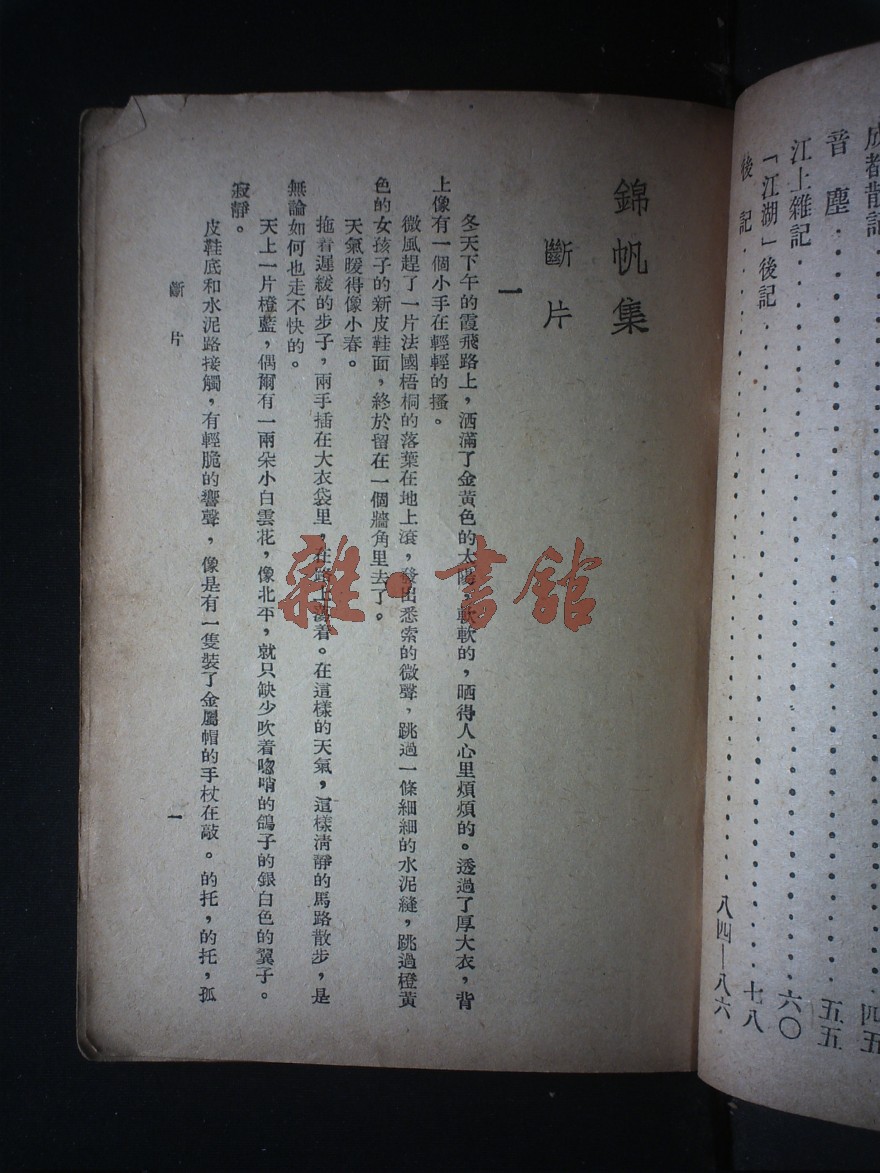 成都散記・・・・・・・・・・・・四五
音塵・・・・・・・・・・・・五五
江上雜記・・・・・・・・・・・・六〇
「江湖」後記・・・・・・・・・・・・七八
後記・・・・・・・・・・・・八四—八六
錦帆集
斷片
一
冬天下午的霞飛路上，洒滿了金黃色的太陽，軟軟的，晒得人心里煩煩的。透過了厚大衣，背
上像有一個小手在輕輕的搔。
微風趕了一片法國梧桐的落葉在地上滾，發出悉索的微聲，跳過一條細細的水泥縫，跳過橙黃
色的女孩子的新皮鞋面，終於留在一個牆角里去了。
天氣暖得像小春。
拖着遲緩的步子，兩手插在大衣袋里，在路上 着。在這樣的天氣，這樣清靜的馬路散步，是
無論如何也走不快的。
天上一片橙藍，偶爾有一兩朵小白雲花，像北平，就只缺少吹着唿哨的鴿子的銀白色的翼子。
寂靜。
皮鞋底和水泥路接觸，有輕脆的響聲，像是有一隻裝了金屬帽的手杖在敲。的托，的托，孤
斷片
一
雜・書館